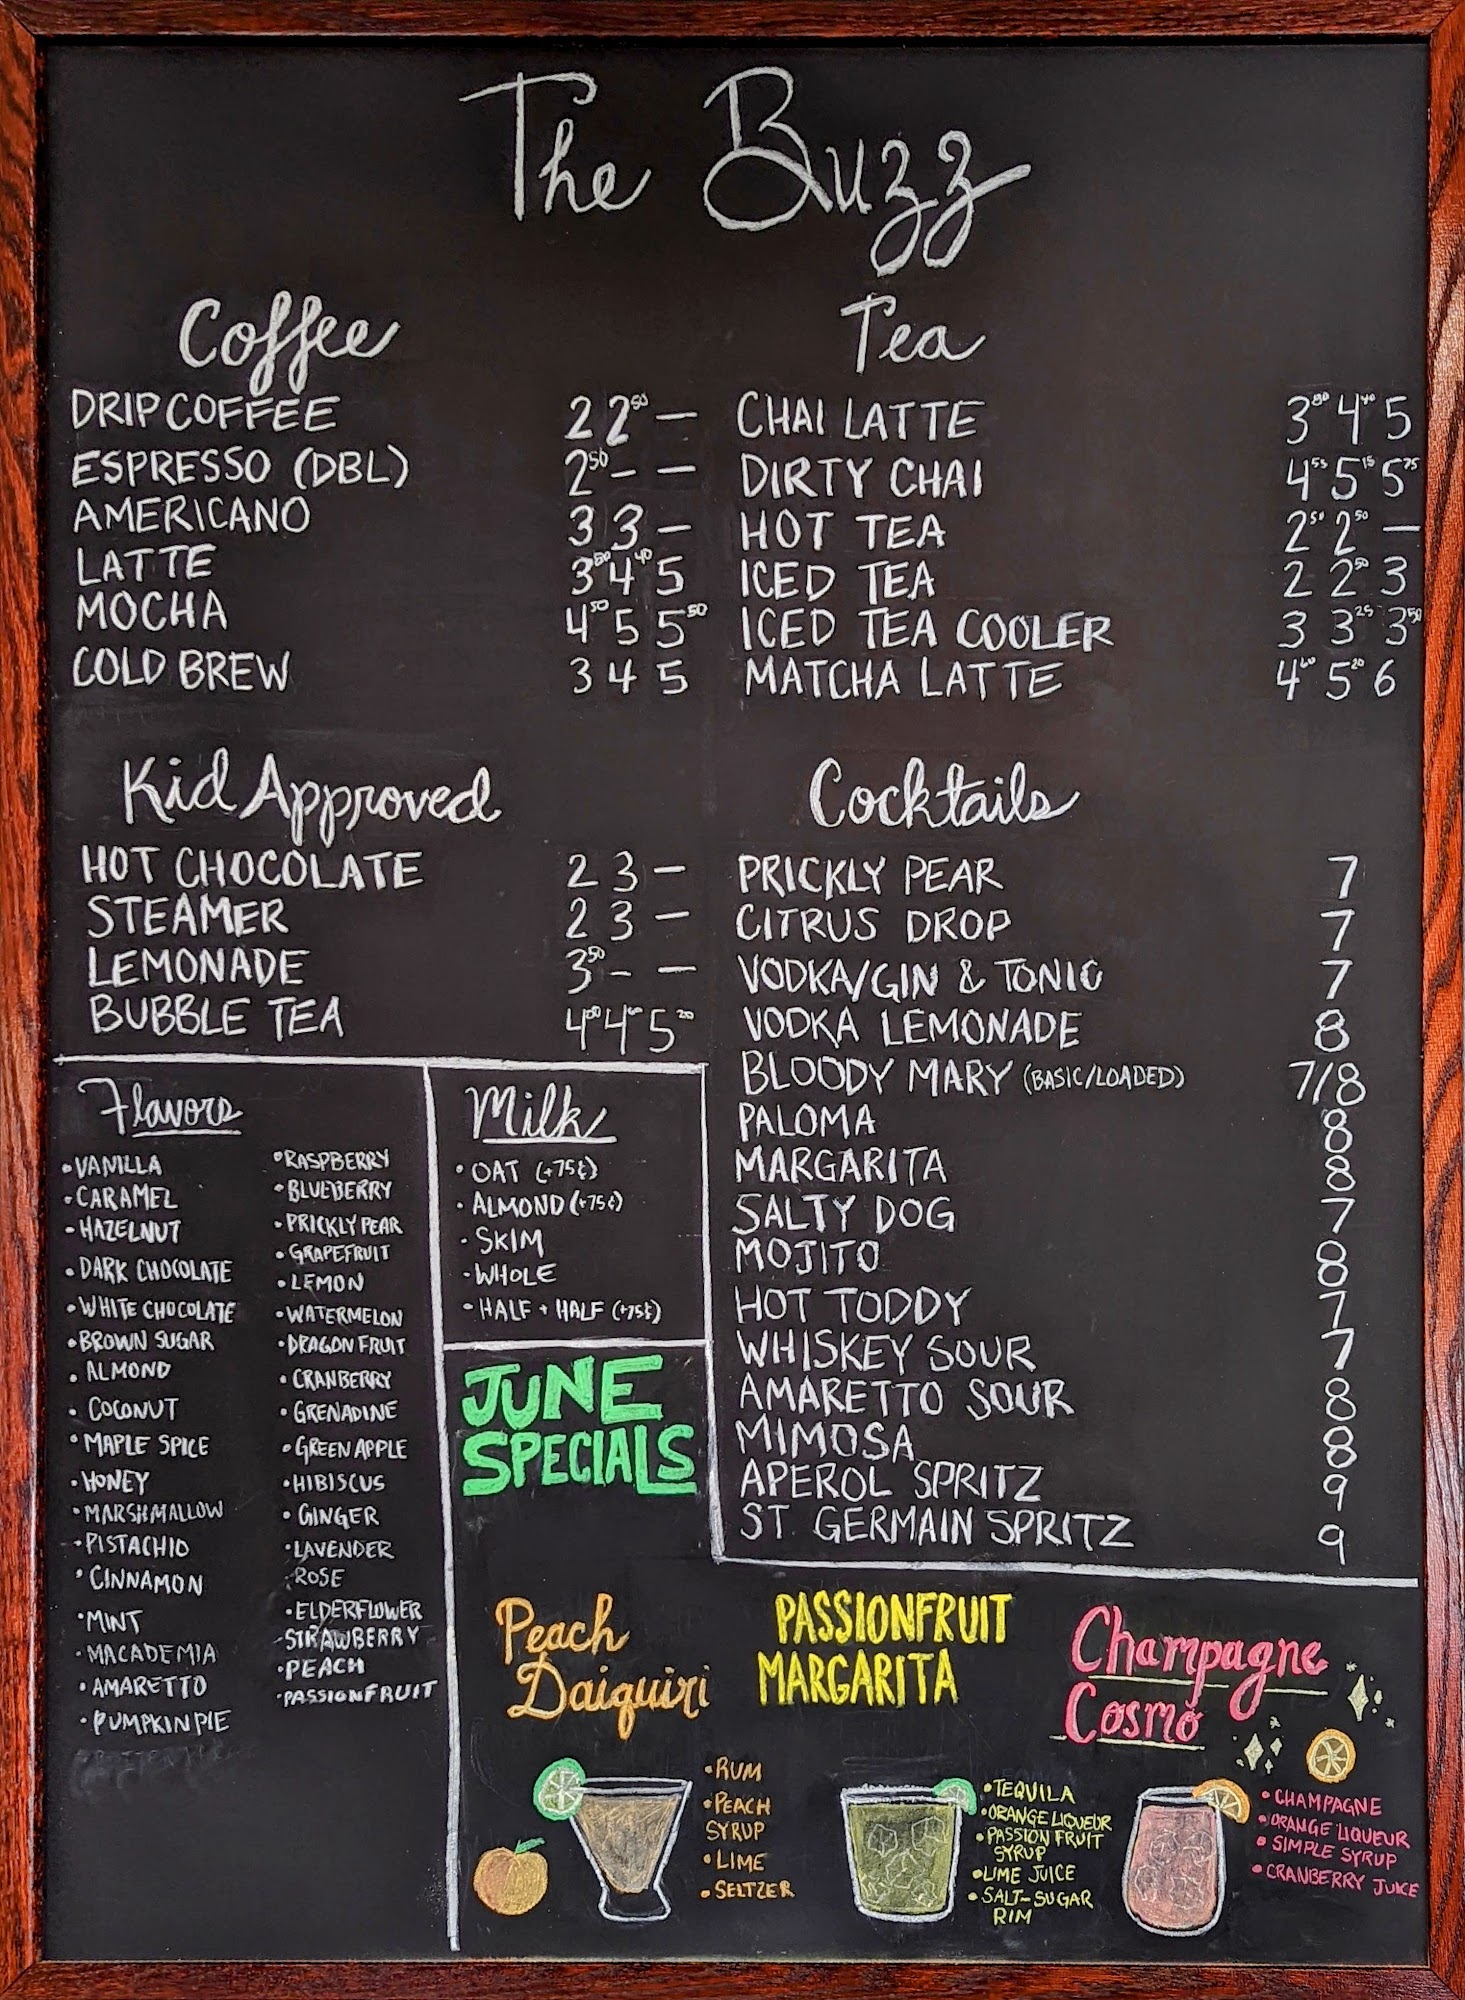 The Buzz
Coffee
DRIP COFFEE 2 2⁵⁰ —
ESPRESSO (DBL) 2⁵⁰ — —
AMERICANO 3 3 —
LATTE 3⁵⁰ 4⁴⁰ 5
MOCHA 4⁵⁰ 5 5⁵⁰
COLD BREW 3 4 5
Tea
CHAI LATTE 3⁵⁰ 4⁴⁰ 5
DIRTY CHAI 4⁵⁵ 5¹⁵ 5⁷⁵
HOT TEA 2⁵⁰ 2⁵⁰ —
ICED TEA 2 2⁵⁰ 3
ICED TEA COOLER 3 3²⁵ 3⁵⁰
MATCHA LATTE 4⁶⁰ 5²⁰ 6
Kid Approved
HOT CHOCOLATE 2 3 —
STEAMER 2 3 —
LEMONADE 3⁵⁰ — —
BUBBLE TEA 4 4 5²⁰
Cocktails
PRICKLY PEAR 7
CITRUS DROP 7
VODKA/GIN & TONIC 7
VODKA LEMONADE 8
BLOODY MARY (BASIC/LOADED) 7/8
PALOMA 8
MARGARITA 8
SALTY DOG 7
MOJITO 8
HOT TODDY 7
WHISKEY SOUR 7
AMARETTO SOUR 8
MIMOSA 8
APEROL SPRITZ 9
ST GERMAIN SPRITZ 9
Flavors
• VANILLA
• CARAMEL
• HAZELNUT
• DARK CHOCOLATE
• WHITE CHOCOLATE
• BROWN SUGAR
• ALMOND
• COCONUT
• MAPLE SPICE
• HONEY
• MARSHMALLOW
• PISTACHIO
• CINNAMON
• MINT
• MACADEMIA
• AMARETTO
• PUMPKIN PIE
• RASPBERRY
• BLUEBERRY
• PRICKLY PEAR
• GRAPEFRUIT
• LEMON
• WATERMELON
• DRAGON FRUIT
• CRANBERRY
• GRENADINE
• GREEN APPLE
• HIBISCUS
• GINGER
• LAVENDER
• ROSE
• ELDERFLOWER
• STRAWBERRY
• PEACH
• PASSIONFRUIT
Milk
• OAT (+75¢)
• ALMOND (+75¢)
• SKIM
• WHOLE
• HALF + HALF (+75¢)
JUNE
SPECIALS
Peach
Daiquiri
• RUM
• PEACH
SYRUP
• LIME
• SELTZER
PASSIONFRUIT
MARGARITA
• TEQUILA
• ORANGE LIQUEUR
• PASSION FRUIT
SYRUP
• LIME JUICE
• SALT-SUGAR
RIM
Champagne
Cosmo
• CHAMPAGNE
• ORANGE LIQUEUR
• SIMPLE SYRUP
• CRANBERRY JUICE